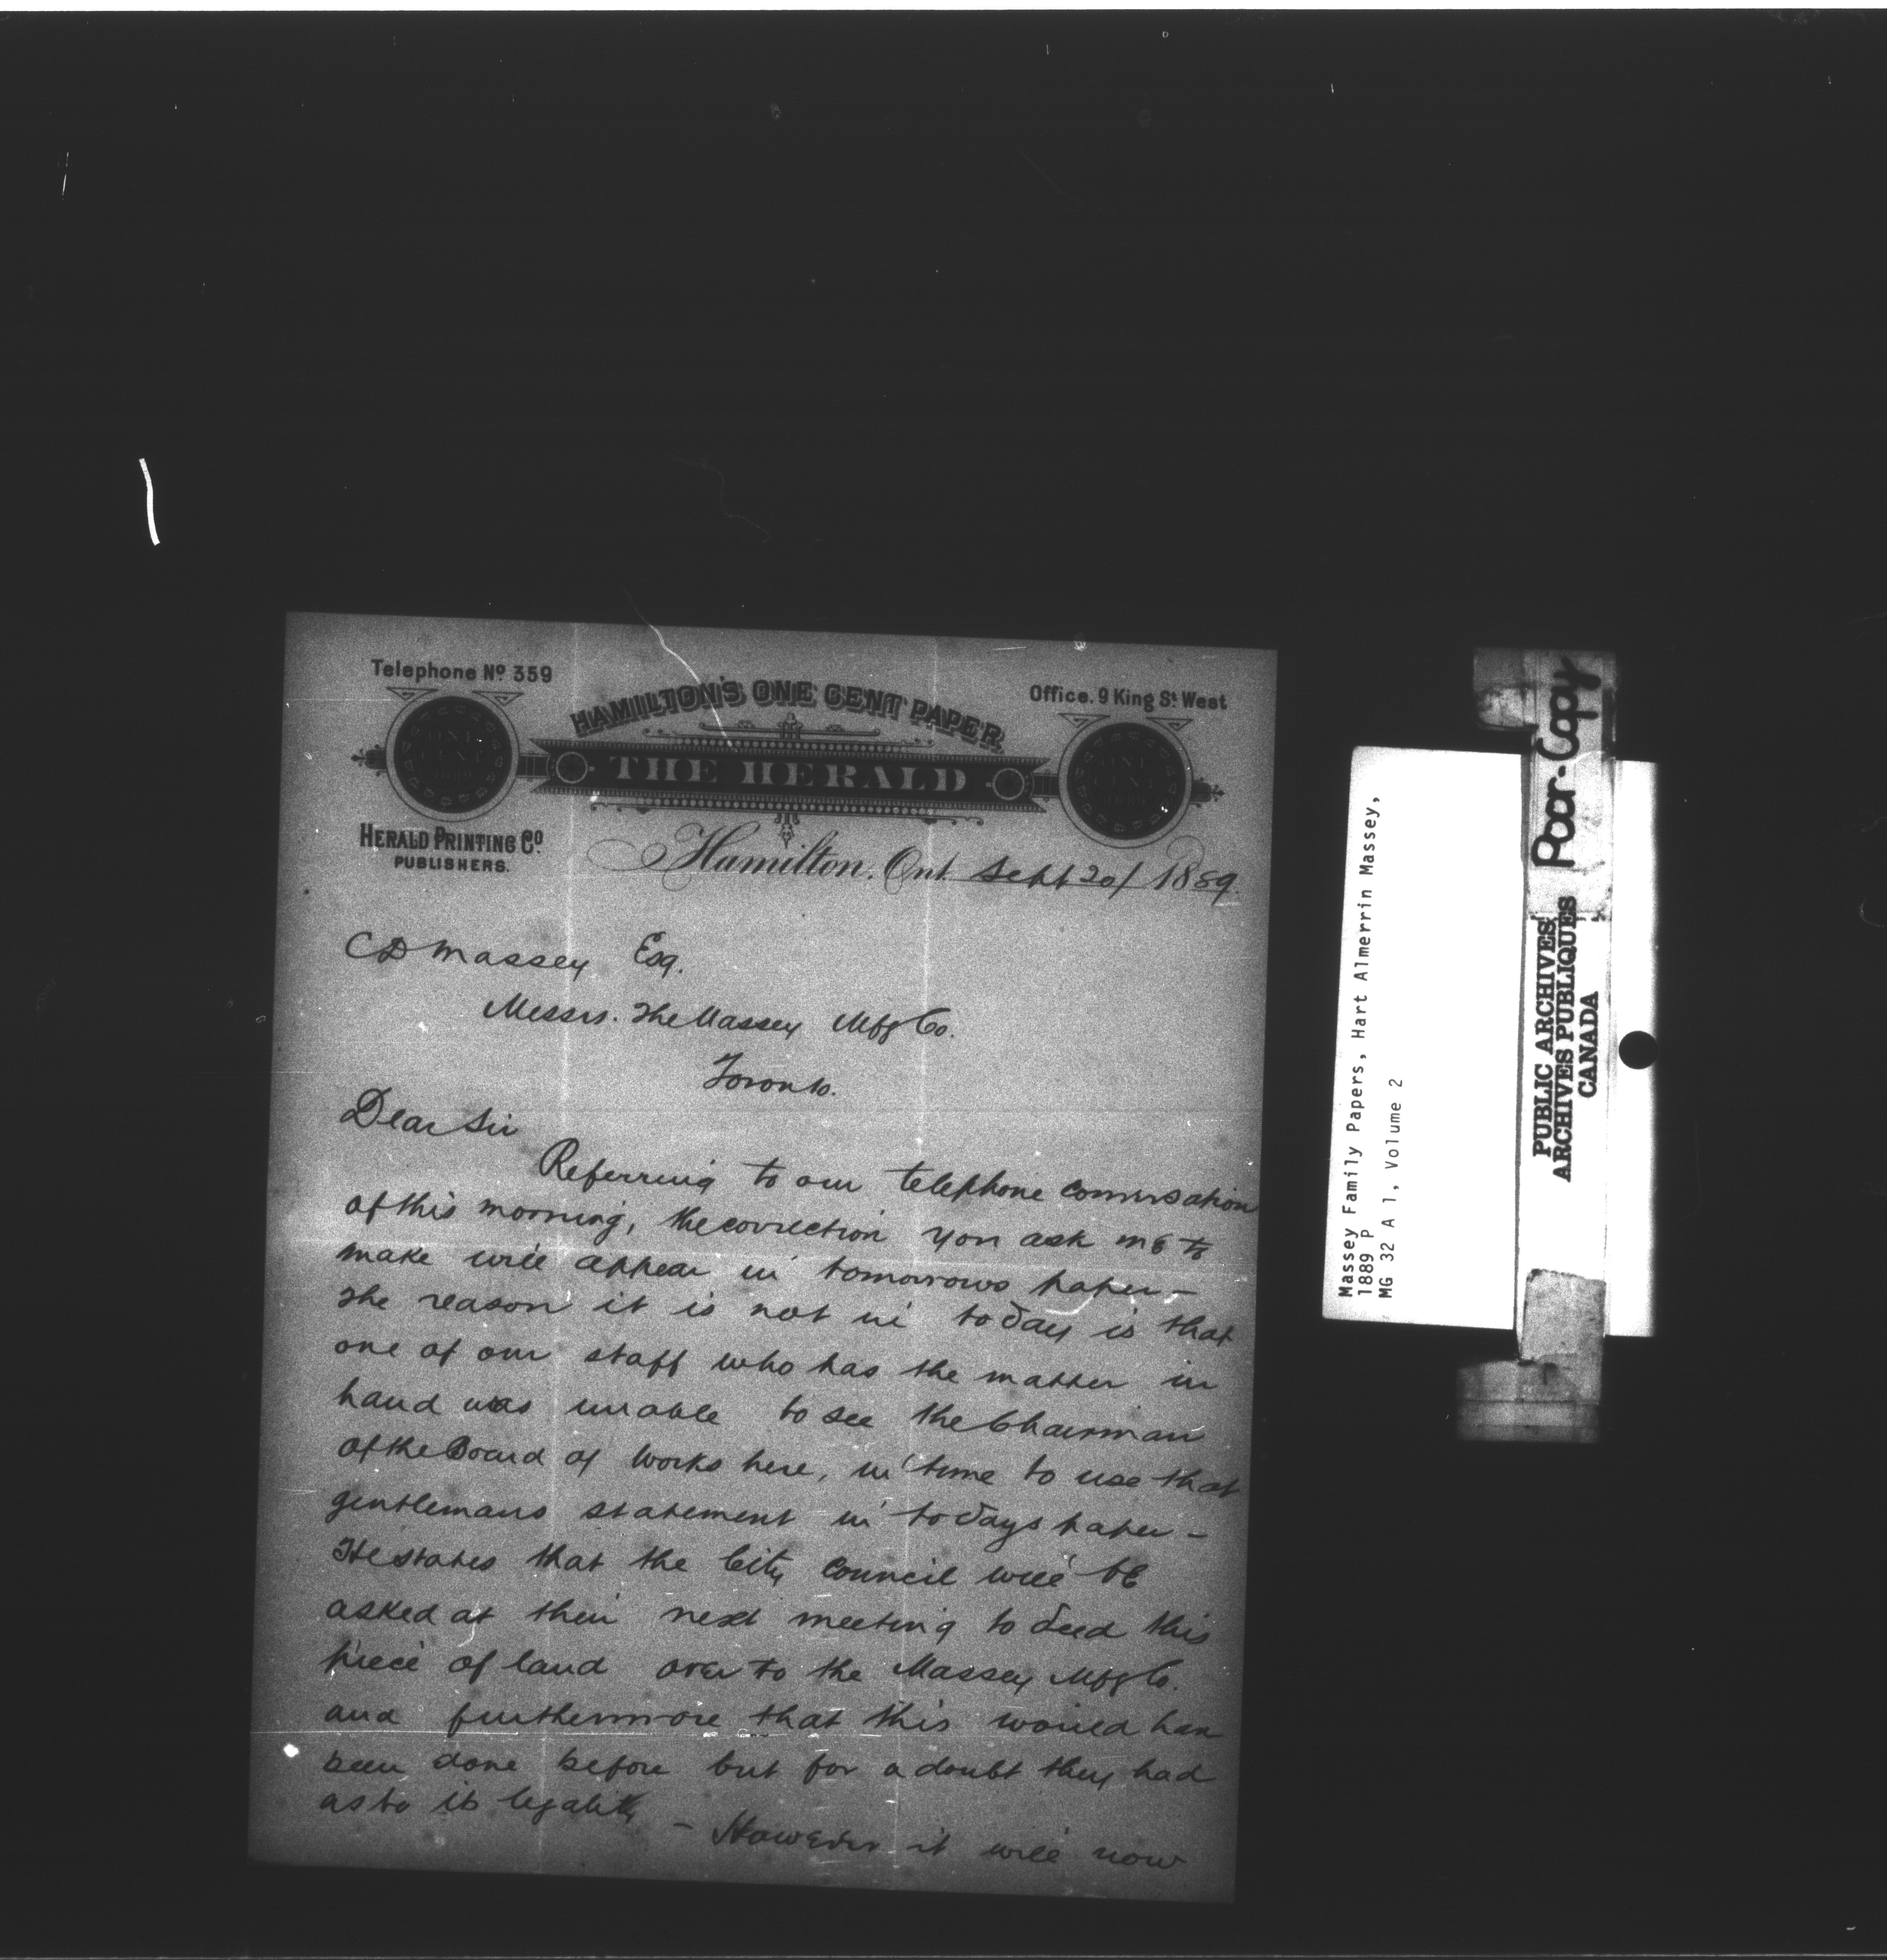 Telephone Nº 359
HAMILTON'S ONE CENT PAPER.
Office. 9 King St West
ONE CENT 1889
THE HERALD
ONE CENT 1889
HERALD PRINTING Cº
PUBLISHERS.
Hamilton. Ont. Sept 20/ 1889.
CD Massey Esq.
Messrs. The Massey Mfg Co.
Toronto.
Dear Sir
Referring to our telephone conversation
of this morning, the correction you ask me to
make will appear in tomorrows paper –
The reason it is not in today is that
one of our staff who has the matter in
hand was unable to see the Chairman
of the Board of Works here, in time to use that
gentlemans statement in todays paper –
He states that the City Council will be
asked at their next meeting to deed this
piece of land over to the Massey Mfg Co.
and furthermore that this would have
been done before but for a doubt they had
as to its legality – However it will now
Massey Family Papers, Hart Almerrin Massey,
1889 P
MG 32 A 1, Volume 2
Poor-Copy
PUBLIC ARCHIVES
ARCHIVES PUBLIQUES
CANADA